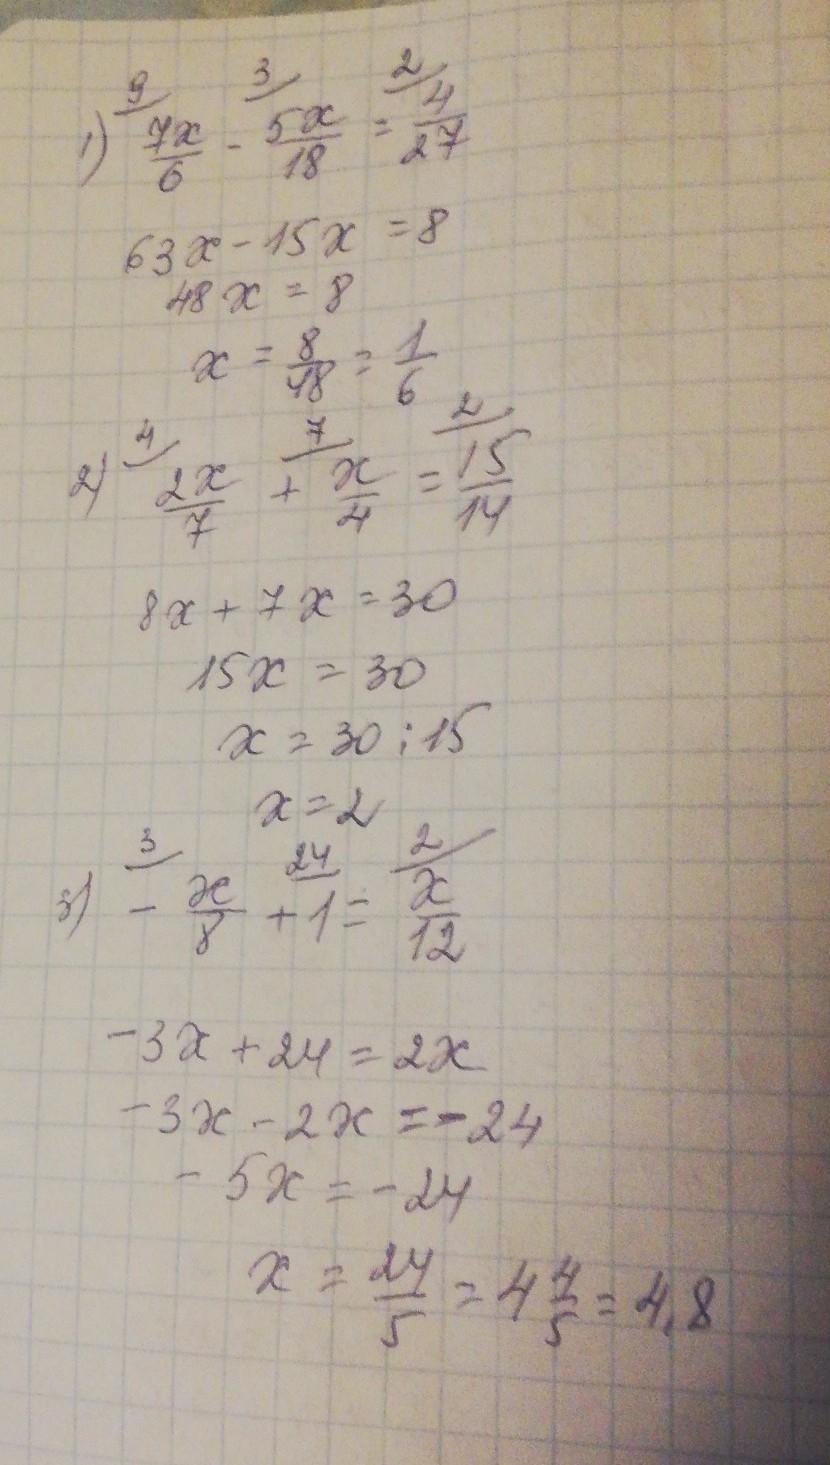 9/ 3/ 2/
1) 7x/6 - 5x/18 = 4/27
63x - 15x = 8
48x = 8
x = 8/48 = 1/6
4/ 7/ 2/
2) 2x/7 + x/4 = 15/14
8x + 7x = 30
15x = 30
x = 30 : 15
x = 2
3/ 24/ 2/
3) - x/8 + 1 = x/12
-3x + 24 = 2x
-3x - 2x = -24
-5x = -24
x = 24/5 = 4 4/5 = 4,8